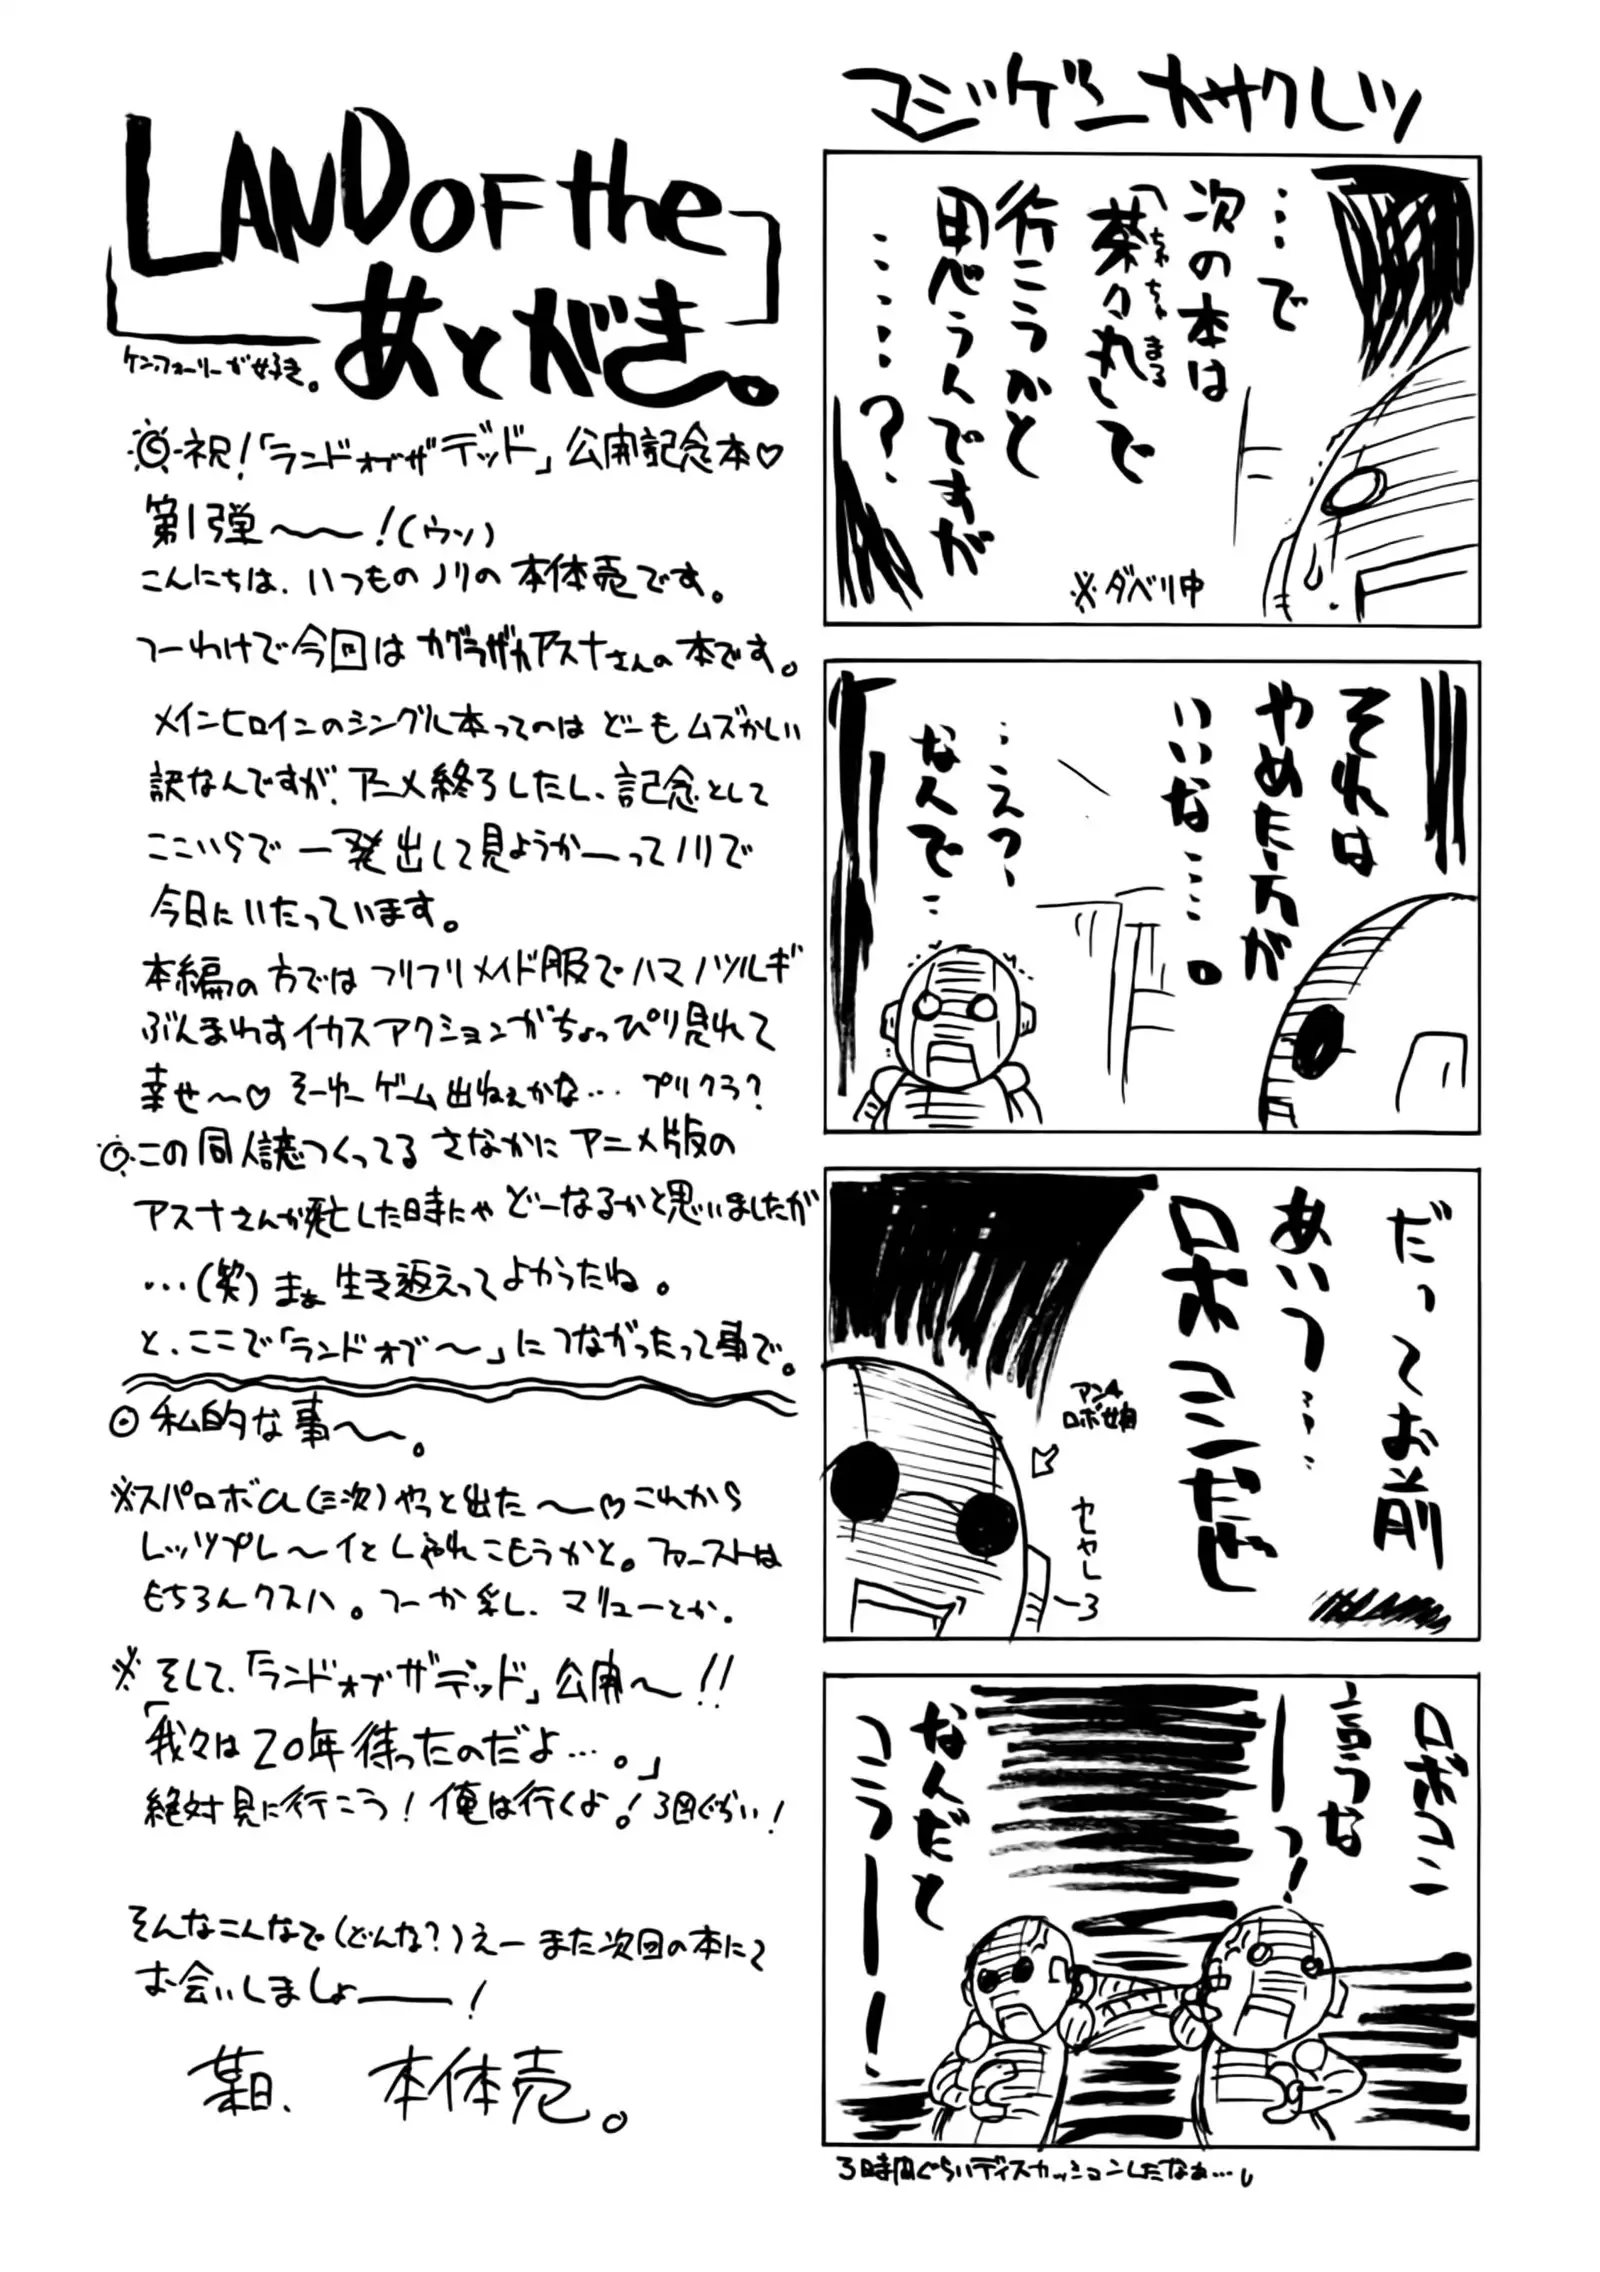 LAND OF the
あとがき。
ケン・フォーリーが好き。
祝!「ランドオブザデッド」公開記念本♡
第1弾〜〜!(ウソ)
こんにちは、いつものノリの本体売です。
つーわけで今回はカグラザカアスナさんの本です。
メインヒロインのシングル本ってのはどーもムズかしい
訳なんですが、アニメ終ろしたし、記念として
ここいらで一発出して見ようかーってノリで
今日にいたっています。
本編の方ではフリフリメイド服でハマノツルギ
ぶんまわすイカスアクションがちょっぴり見れて
幸せ〜♡ そーゆーゲーム出ねぇかな… プリクラ?
この同人誌つくってるさなかにアニメ版の
アスナさんが死亡した時にゃどーなるかと思いましたが
…(笑)まぁ生き返えってよかったね。
と、ここで「ランドオブ〜」につながったって事で。
私的な事〜。
※スパロボα(三次)やっと出た〜♡これから
レッツプレ〜イとしゃれこもうかと。ファーストは
もちろんクスハ。つーか乳し、マリューとか。
※そして、「ランドオブザデッド」公開〜!!
「我々は20年待ったのだよ…。」
絶対見に行こう!俺は行くよ!3回ぐらい!
そんなこんなで(どんな?)えーまた次回の本にて
お会いしましょ――!
某日、 本体売。
マジゲンカサクレツ
…で
次の本は
「茶々丸」で
ちゃちゃまる
行こうかと
思うんですが
……?
※ダベリ中
それは
やめた方が
いいな……。
…えっ、
なんで…
だってお前
あいつ……
ロボコンだぜ
アンチ
ロボ娘
セヤし
〜ろ
ロボコン
言うな
――っ!
なんだと
コラ――!
3時間ぐらいディスカッションしたなぁ…。